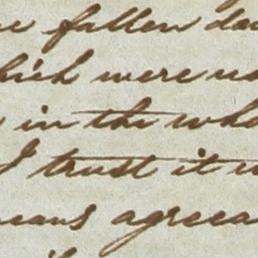 fallen
which were
in the who
I trust it
means agreea